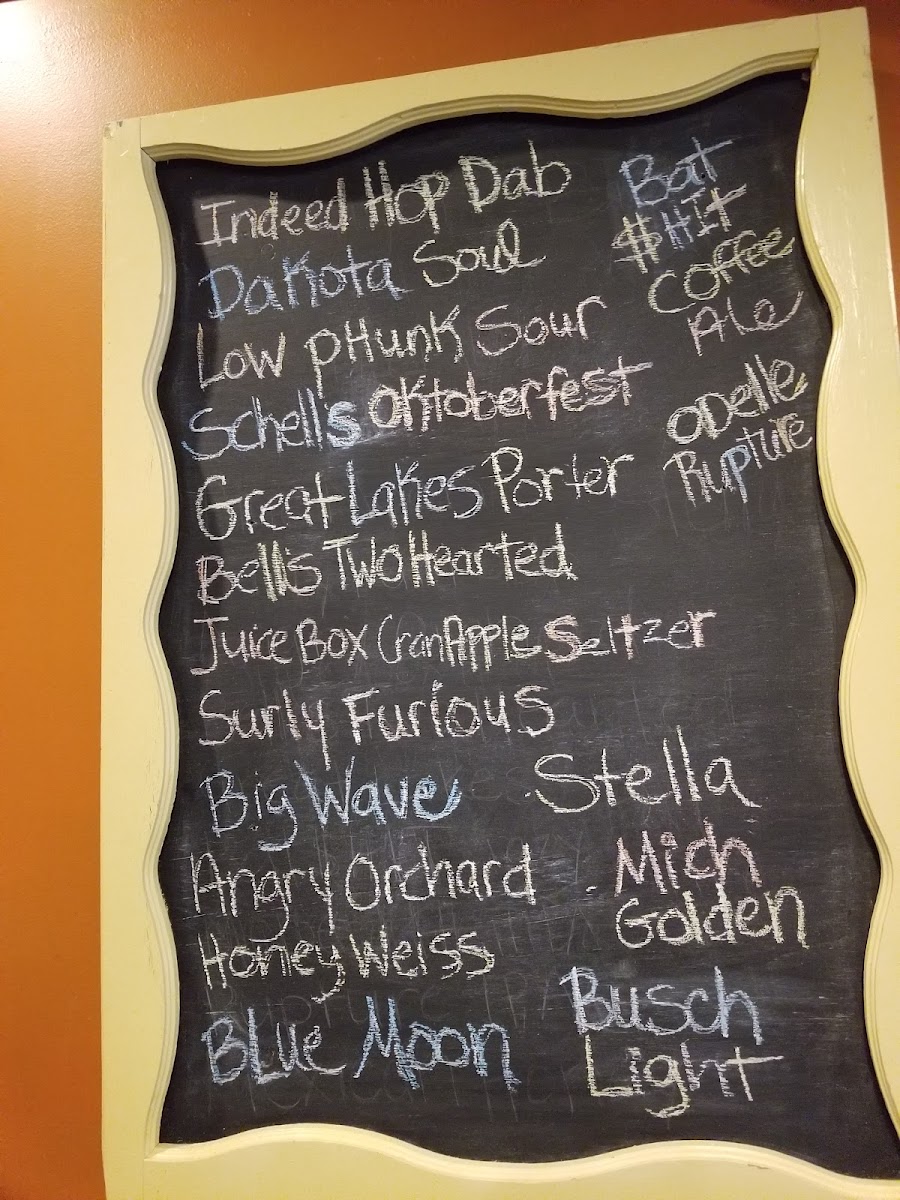 Indeed Hop Dab
Dakota Soul
Low pHunk Sour
Schell's Oktoberfest
Great Lakes Porter
Bell's Two Hearted
Juice Box CranApple Seltzer
Surly Furious
Big Wave
Angry Orchard
Honey Weiss
Blue Moon
Bat
$Hit
Coffee
Ale
Odelle
Rupture
Stella
Mich
Golden
Busch
Light